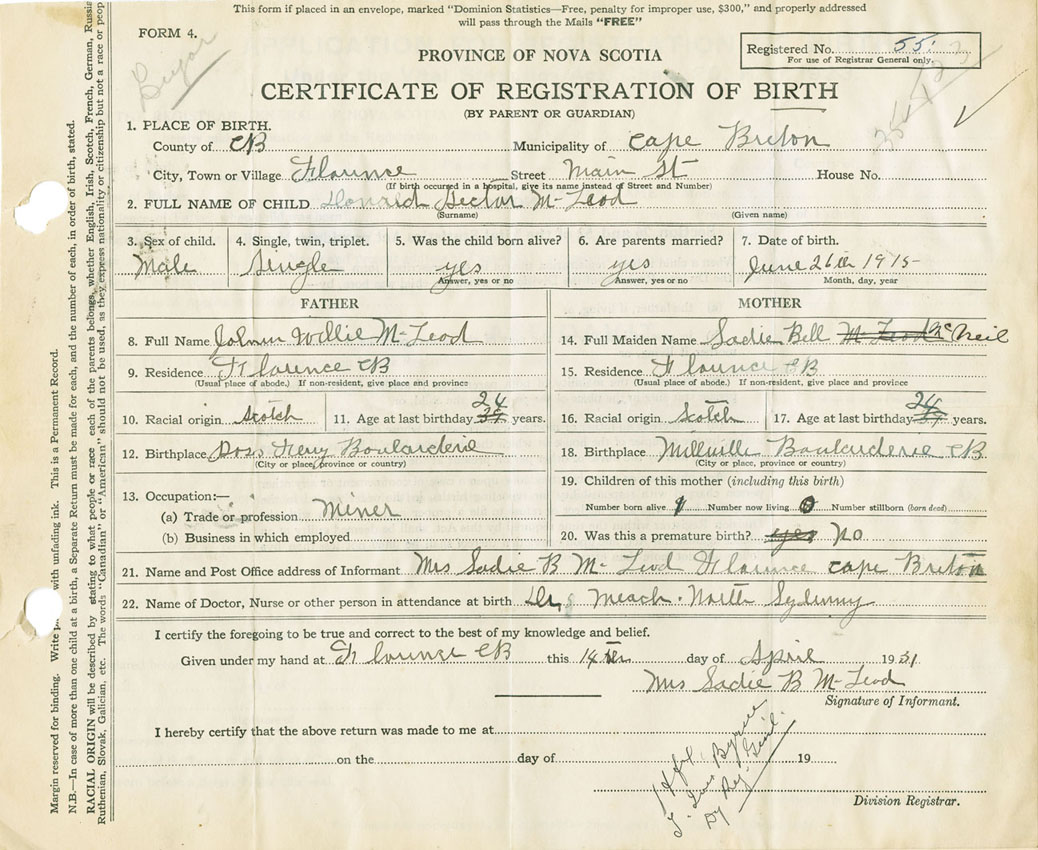 This form if placed in an envelope, marked "Dominion Statistics—Free, penalty for improper use, $300," and properly addressed
will pass through the Mails "FREE"
FORM 4.
PROVINCE OF NOVA SCOTIA
Registered No. 55
For use of Registrar General only.
CERTIFICATE OF REGISTRATION OF BIRTH
(BY PARENT OR GUARDIAN)
1. PLACE OF BIRTH.
County of CB Municipality of Cape Breton
City, Town or Village Florence Street Main St House No.
(If birth occurred in a hospital, give its name instead of Street and Number)
2. FULL NAME OF CHILD Donald Hector McLeod
(Surname) (Given name)
3. Sex of child. 4. Single, twin, triplet. 5. Was the child born alive? 6. Are parents married? 7. Date of birth.
Male Single yes yes June 26th 1915
Answer, yes or no Answer, yes or no Month, day, year
FATHER MOTHER
8. Full Name McLeod 14. Full Maiden Name Sadie Bell McLeod McNeil
9. Residence Florence CB 15. Residence Florence CB
(Usual place of abode.) If non-resident, give place and province (Usual place of abode.) If non-resident, give place and province
10. Racial origin Scotch 11. Age at last birthday 24 years. 16. Racial origin Scotch 17. Age at last birthday 24 years.
12. Birthplace Ross Ferry Boularderie 18. Birthplace Millville Boularderie CB
(City or place, province or country) (City or place, province or country)
13. Occupation:— 19. Children of this mother (including this birth)
(a) Trade or profession Miner Number born alive 1 Number now living 0 Number stillborn (born dead)
(b) Business in which employed 20. Was this a premature birth? yes No
21. Name and Post Office address of Informant Mrs Sadie B McLeod Florence Cape Breton
22. Name of Doctor, Nurse or other person in attendance at birth Dr Meach. North Sydney
I certify the foregoing to be true and correct to the best of my knowledge and belief.
Given under my hand at Florence CB this 14th day of April 1931
Mrs Sadie B McLeod
Signature of Informant.
I hereby certify that the above return was made to me at
on the day of 19
Byrne
Dy Reg. Genl.
Division Registrar.
Margin reserved for binding. Write with unfading ink. This is a Permanent Record.
N.B.—In case of more than one child at a birth, a Separate Return must be made for each, and the number of each, in order of birth, stated.
RACIAL ORIGIN will be described by stating to what people or race each of the parents belongs, whether English, Irish, Scotch, French, German,
Ruthenian, Slovak, Galician, etc. The words "Canadian" or "American" should not be used, as they express nationality or citizenship but not a race or